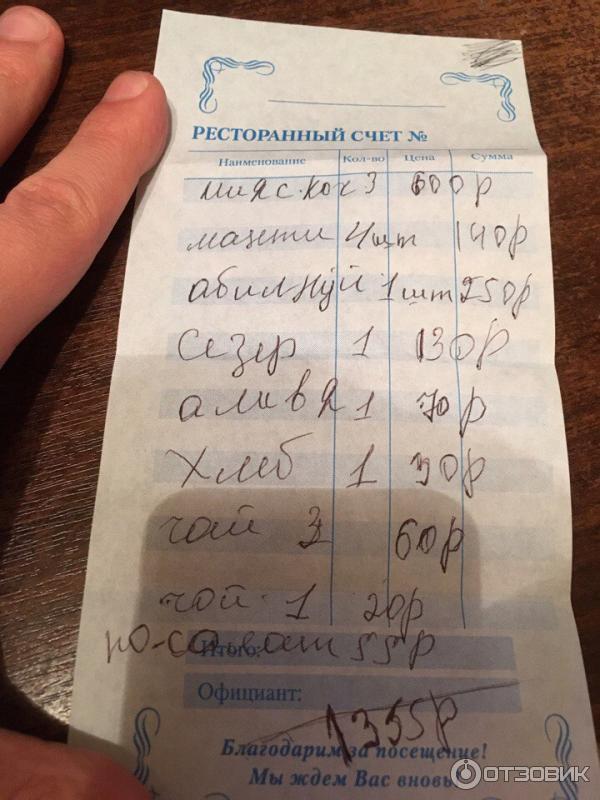 РЕСТОРАННЫЙ СЧЕТ №
Наименование Кол-во Цена Сумма
3 600р
манти 4шт 140р
абилнуй 1шт 250р
сезер 1 130р
аливя 1 70р
хлеб 1 30р
чай 3 60р
чай 1 20р
Итого: 55р
Официант:
1355р
Благодарим за посещение!
Мы ждем Вас вновь
ОТЗОВИК